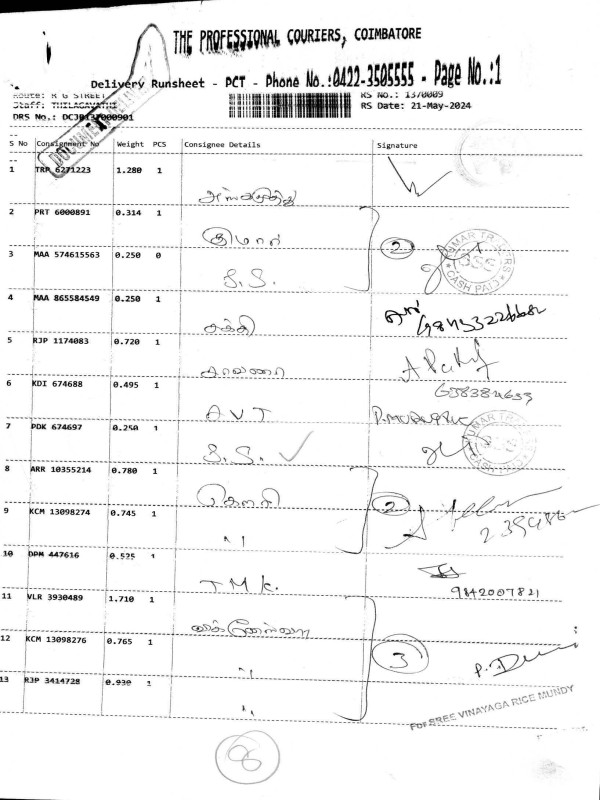 THE PROFESSIONAL COURIERS, COIMBATORE
Delivery Runsheet - PCT - Phone No.:0422-3505555 - Page No.:1
Route: R G STREET
RS No.: 1370009
Staff: THILAGAVATHI
RS Date: 21-May-2024
DRS No.: DCJ0137000901
S No Consignment No Weight PCS Consignee Details Signature
1 TRP 6271223 1.280 1
2 PRT 6000891 0.314 1 குமரன் 2
3 MAA 574615563 0.250 0 S.S.
KUMAR TRADERS
CASH PAID
4 MAA 865584549 0.250 1 சக்தி
5 RJP 1174083 0.720 1
6 KDI 674688 0.495 1 A.V.T
7 PDK 674697 0.250 1 S.S.
KUMAR TRADERS
CASH PAID
8 ARR 10355214 0.780 1 2
9 KCM 13098274 0.745 1 "
10 DPM 447616 0.525 1 T.M.K. 9842007821
11 VLR 3930489 1.710 1
12 KCM 13098276 0.765 1 " 3 P. Devi
13 RJP 3414728 0.930 1 "
For SREE VINAYAGA RICE MUNDY
8